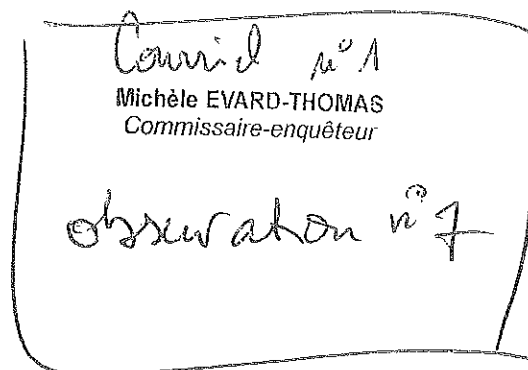 Courriel n° 1
Michèle EVARD-THOMAS
Commissaire-enquêteur
observation n° 7